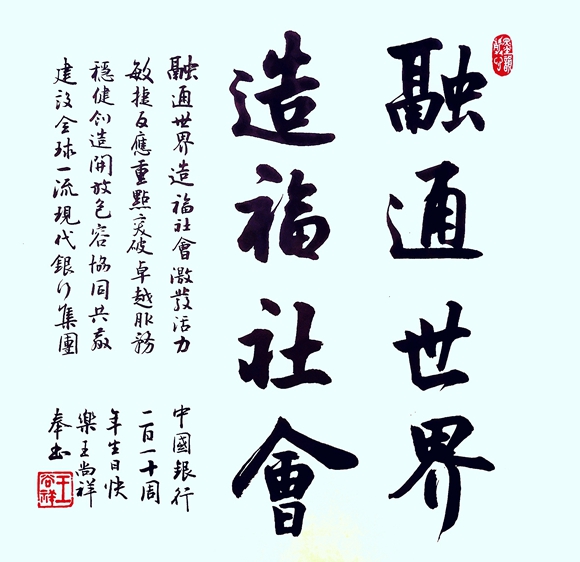 融通世界
造福社會
融通世界造福社會激發活力
敏捷反應重點突破卓越服務
穩健創造開放包容協同共贏
建設全球一流現代銀行集團
中國銀行
一百一十周
年生日快
樂王尚祥
奉书